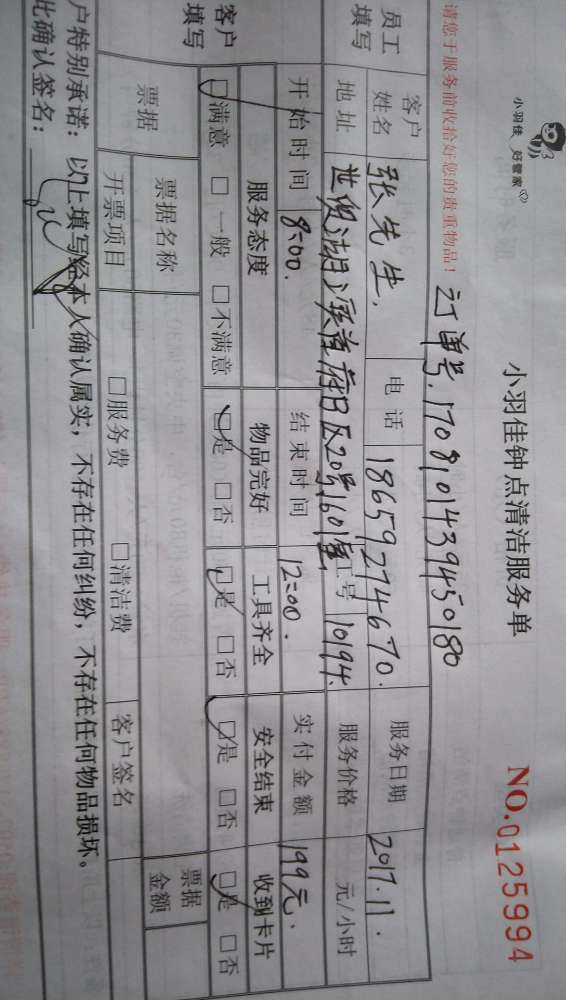 小羽佳 好管家
小羽佳钟点清洁服务单
NO.0125994
请您于服务前收拾好您的贵重物品！
订单号.1708101439450180
员工填写
客户姓名 张先生, 电话 18659274670. 服务日期 2017.11.
地址 世侯湖滨首府B区20号1601室 工号 10194. 服务价格 元/小时
开始时间 8:00. 结束时间 12:00. 实付金额 199元.
客户填写
服务态度 物品完好 工具齐全 安全结束 收到卡片
☑满意 □一般 □不满意 ☑是 □否 ☑是 □否 ☑是 □否 ☑是 □否
票据 票据名称 票据金额
开票项目 □服务费 □清洁费 客户签名
户特别承诺：以上填写经本人确认属实，不存在任何纠纷，不存在任何物品损坏。
此确认签名：